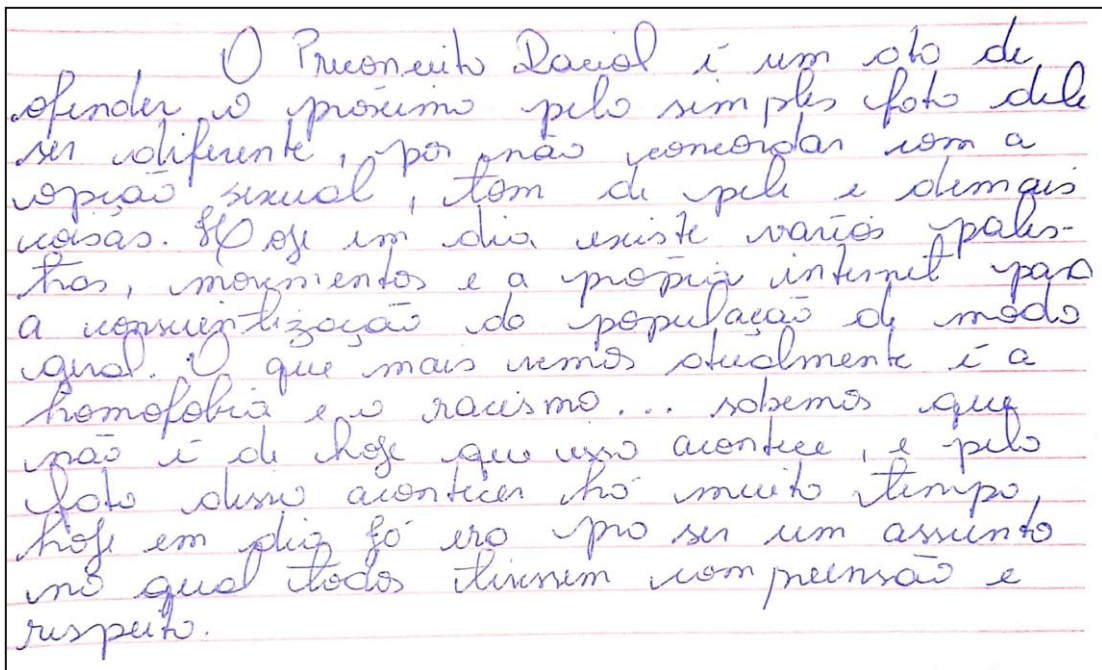 O Preconceito Racial é um ato de
ofender o próximo pelo simples fato dele
ser diferente, por não concordar com a
opção sexual, tom de pele e demais
coisas. Hoje em dia existe varios pales-
tras, movimentos e a própria internet para
a conscientização da população de modo
geral. O que mais vemos atualmente é a
homofobia e o racismo... sabemos que
não é de hoje que isso acontece, e pelo
fato disso acontecer há muito tempo,
hoje em dia já era pra ser um assunto
no qual todos tivessem compreensão e
respeito.